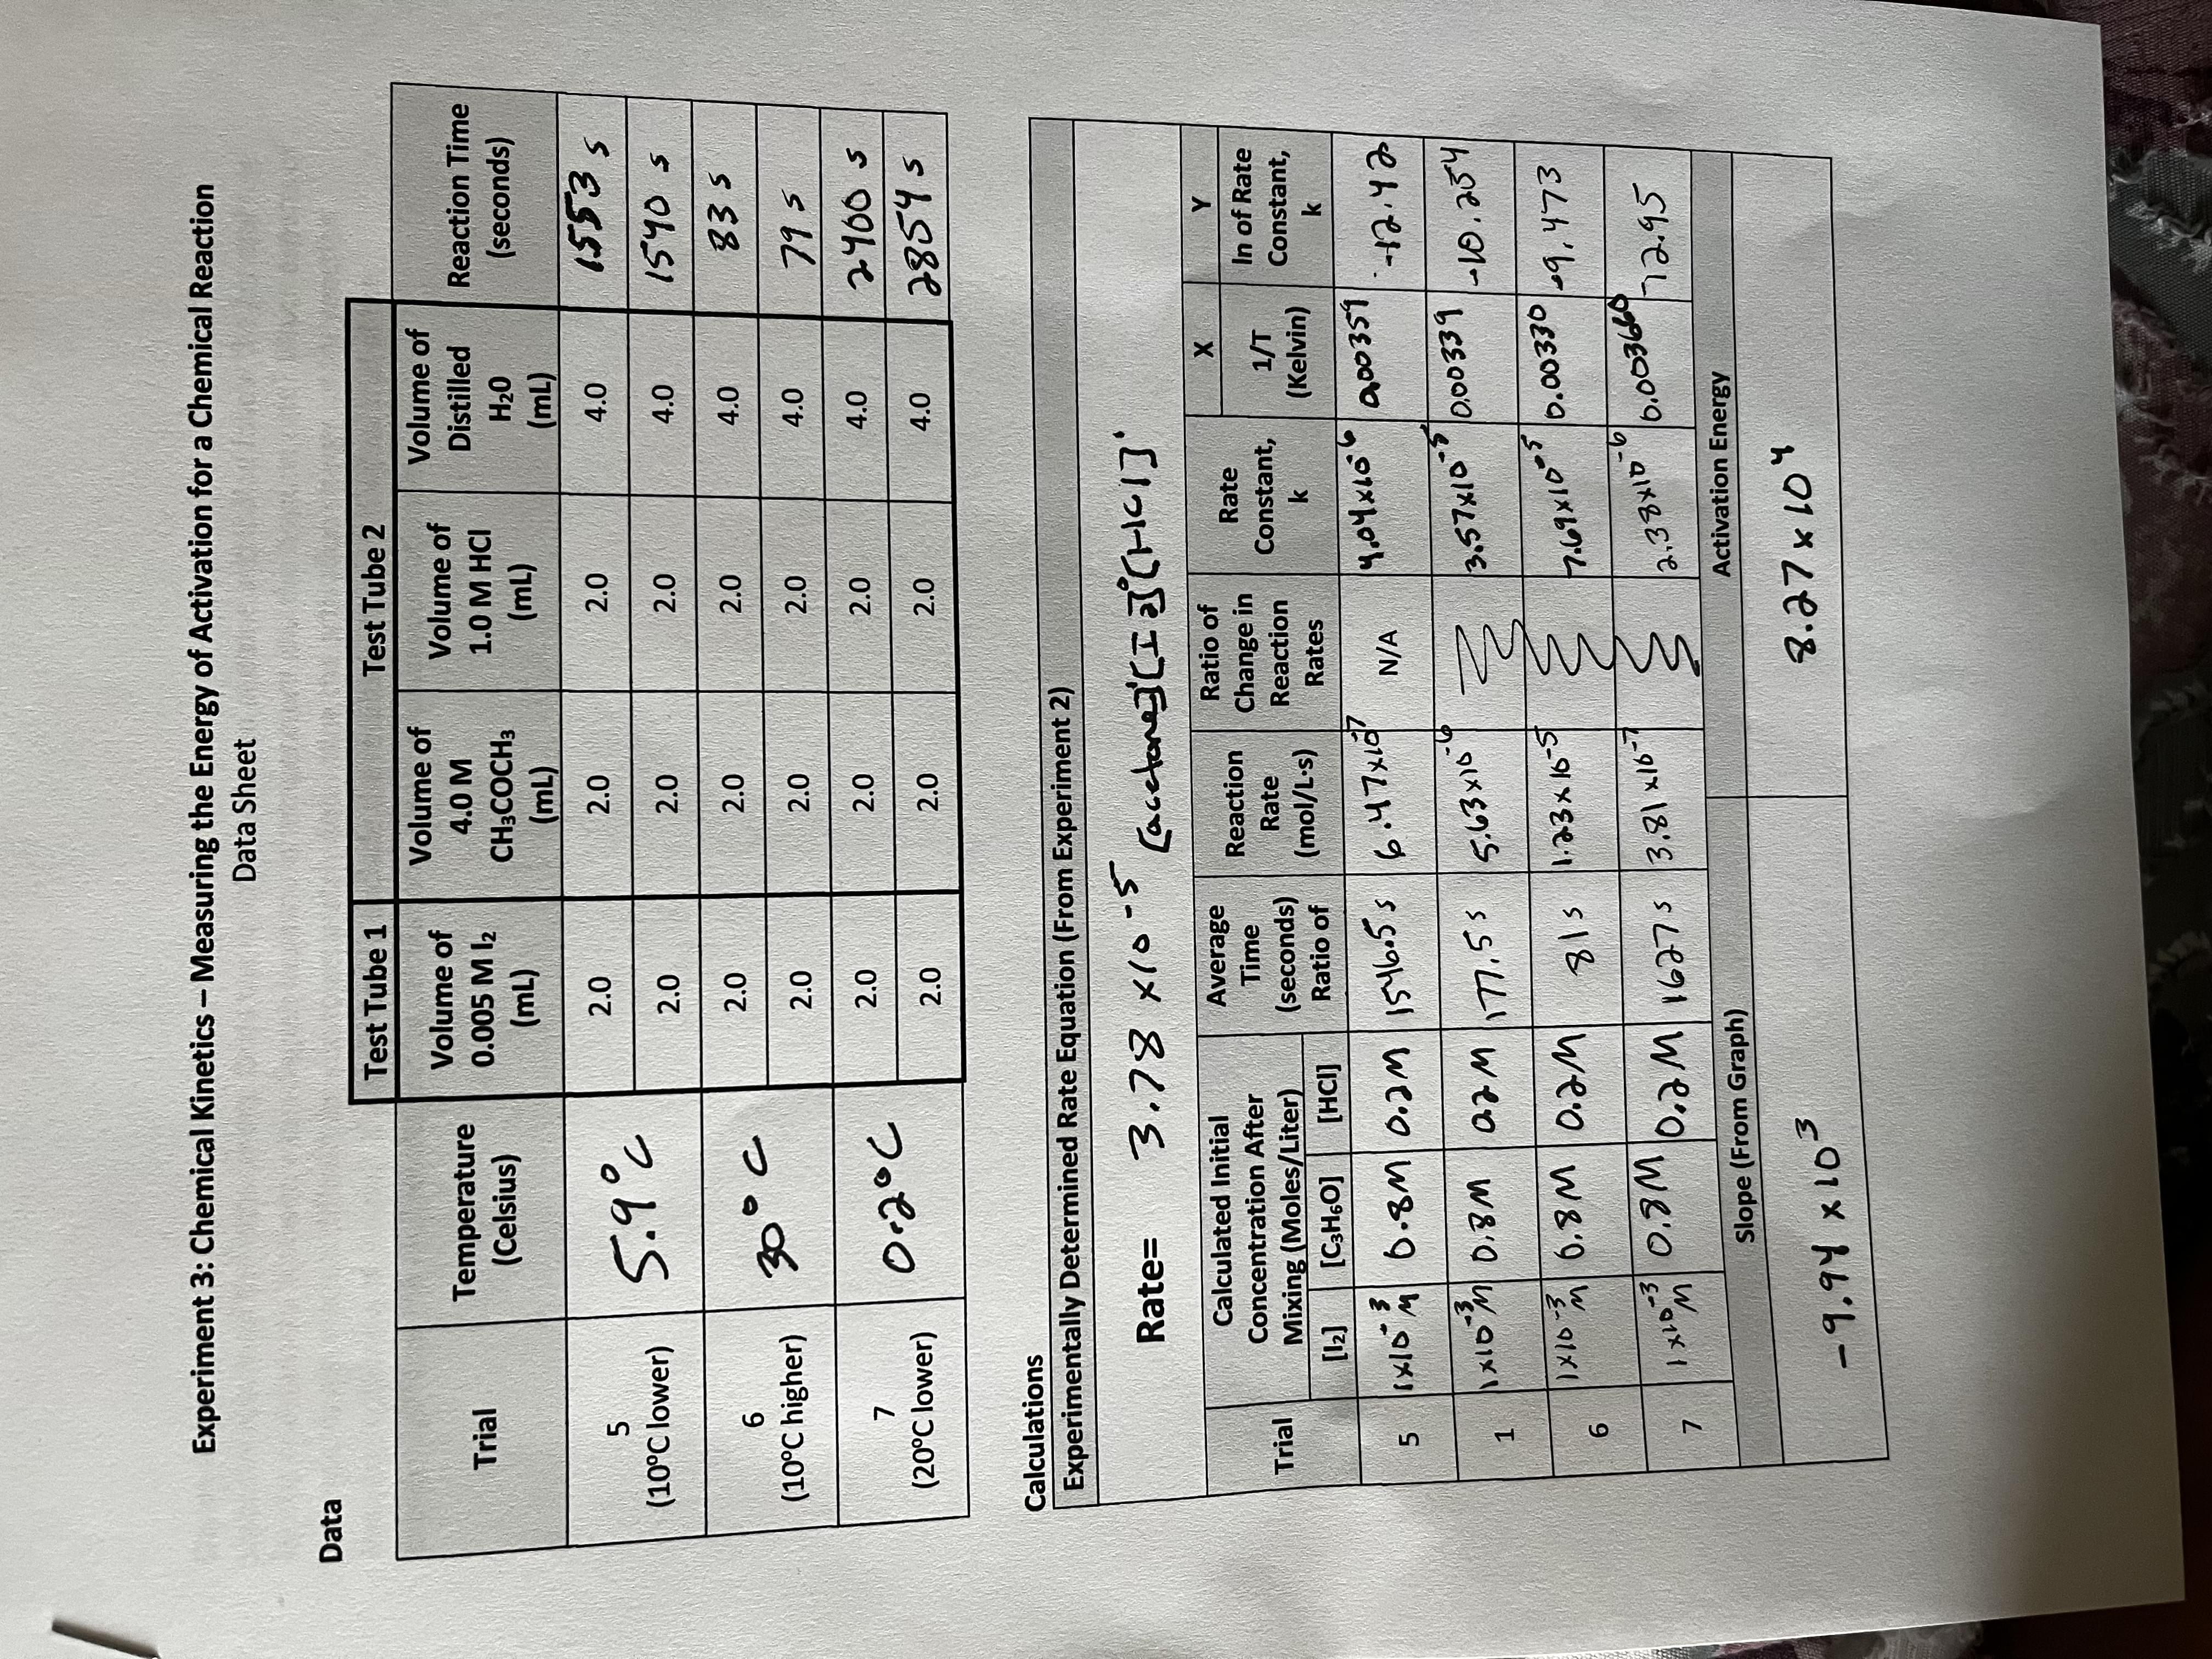 Experiment 3: Chemical Kinetics – Measuring the Energy of Activation for a Chemical Reaction
Data Sheet
Data
Test Tube 1 Test Tube 2
Trial Temperature (Celsius) Volume of 0.005 M I₂ (mL) Volume of 4.0 M CH₃COCH₃ (mL) Volume of 1.0 M HCl (mL) Volume of Distilled H₂0 (mL) Reaction Time (seconds)
5 (10°C lower) 5.9°C 2.0 2.0 2.0 4.0 1553 s
2.0 2.0 2.0 4.0 1540 s
6 (10°C higher) 30°C 2.0 2.0 2.0 4.0 83 s
2.0 2.0 2.0 4.0 79 s
7 (20°C lower) 0.2°C 2.0 2.0 2.0 4.0 2400 s
2.0 2.0 2.0 4.0 2854 s
Calculations
Experimentally Determined Rate Equation (From Experiment 2)
Rate= 3.78 x10⁻⁵ [acetone]¹[I₂]⁰[HCl]¹
Trial Calculated Initial Concentration After Mixing (Moles/Liter) Average Time (seconds) Ratio of Reaction Rate (mol/L·s) Ratio of Change in Reaction Rates Rate Constant, k X Y
[I₂] [C₃H₆O] [HCl] 1/T (Kelvin) ln of Rate Constant, k
5 1x10⁻³M 0.8M 0.2M 1546.5 s 6.47x10⁻⁷ N/A 4.04x10⁻⁶ 0.00359 -12.42
1 1x10⁻³M 0.8M 0.2M 177.5 s 5.63x10⁻⁶ 3.57x10⁻⁵ 0.00339 -10.254
6 1x10⁻³M 0.8M 0.2M 81 s 1.23x10⁻⁵ 7.69x10⁻⁵ 0.00330 -9.473
7 1x10⁻³M 0.8M 0.2M 1627 s 3.81x10⁻⁷ 2.38x10⁻⁶ 0.003660 -12.95
Slope (From Graph) Activation Energy
-9.94 x 10³ 8.27 x 10⁴